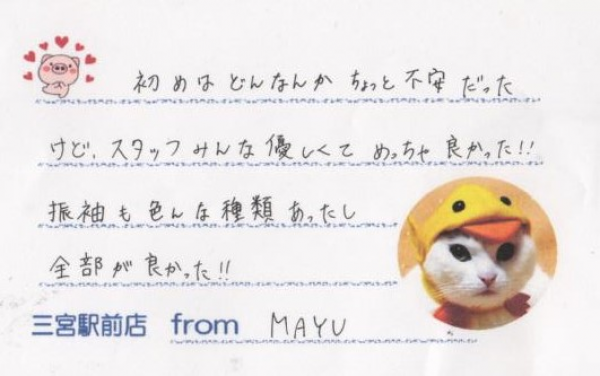 初めは どんなんか ちょっと不安 だった
けど、スタッフみんな優しくて めっちゃ 良かった!!
振袖も色んな種類あったし
全部が良かった!!
三宮駅前店 from MAYU